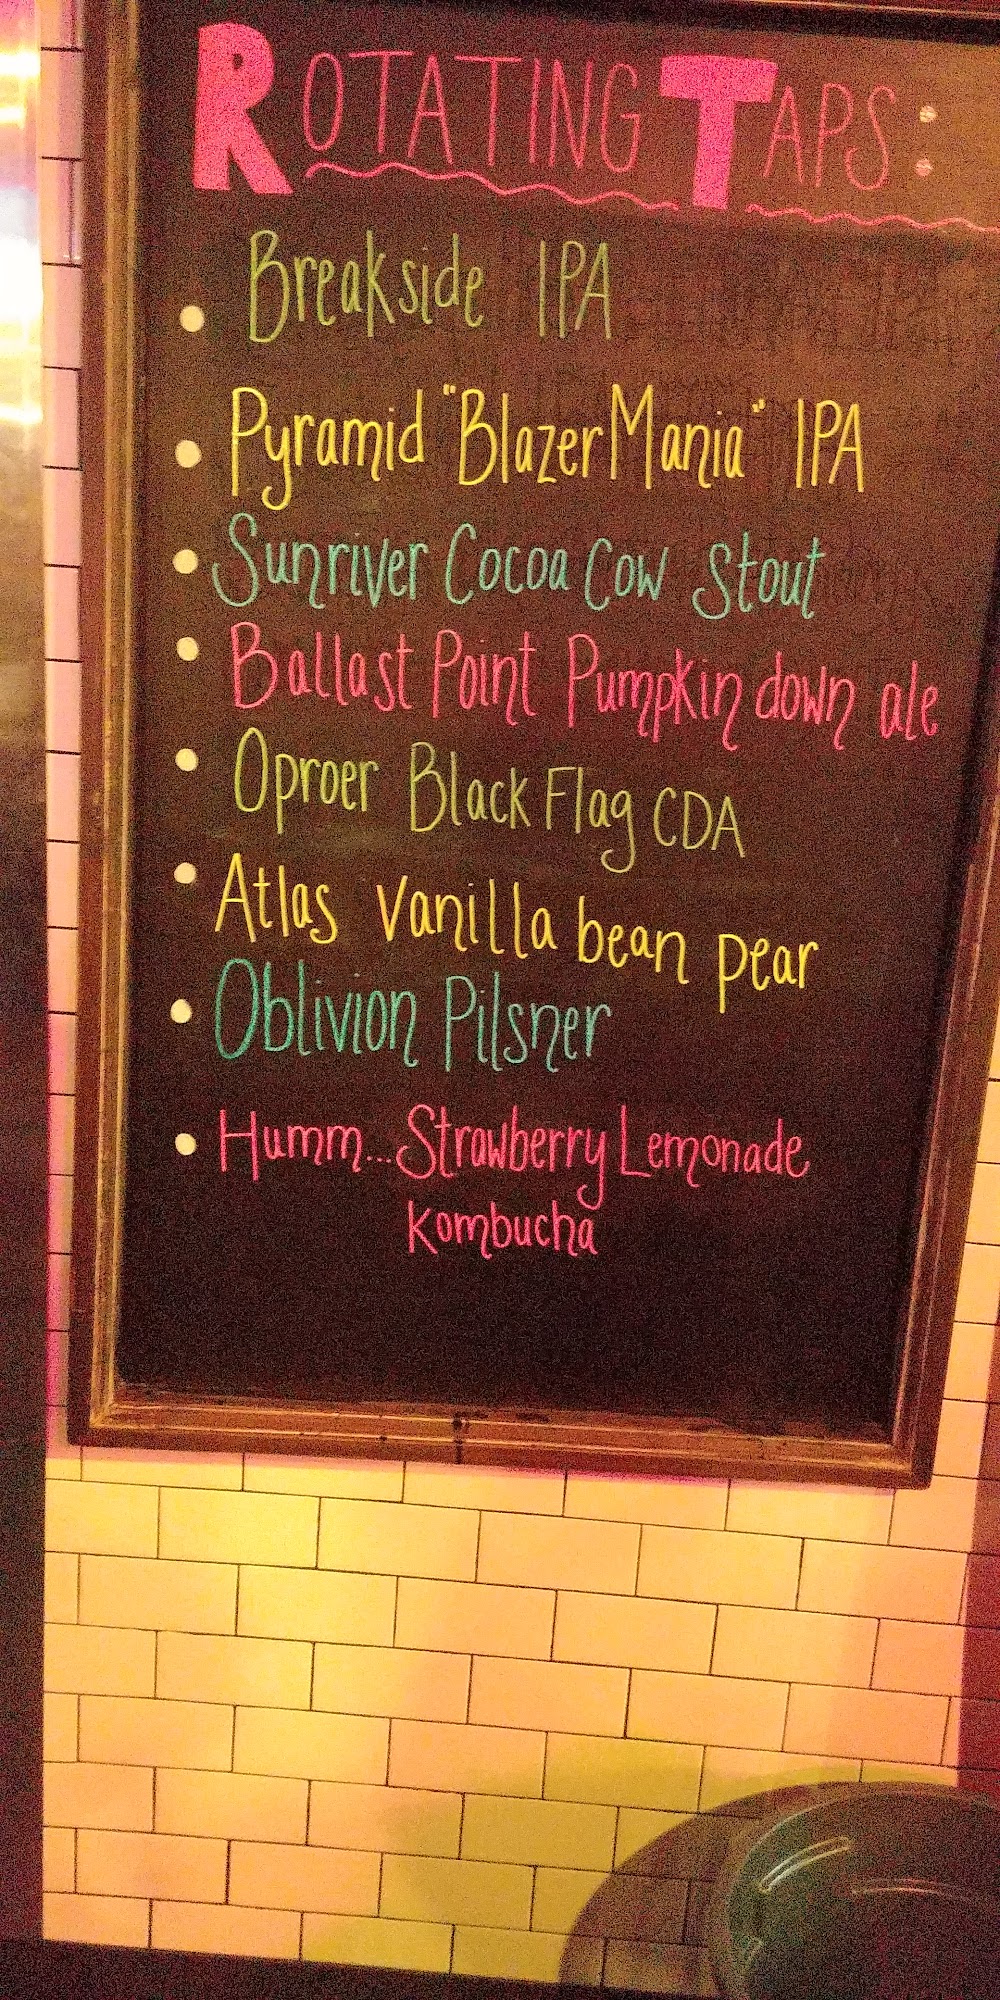 ROTATING TAPS:
• Breakside IPA
• Pyramid "BlazerMania" IPA
• Sunriver Cocoa Cow Stout
• Ballast Point Pumpkin down ale
• Oproer Black Flag CDA
• Atlas Vanilla bean pear
• Oblivion Pilsner
• Humm... Strawberry Lemonade
Kombucha